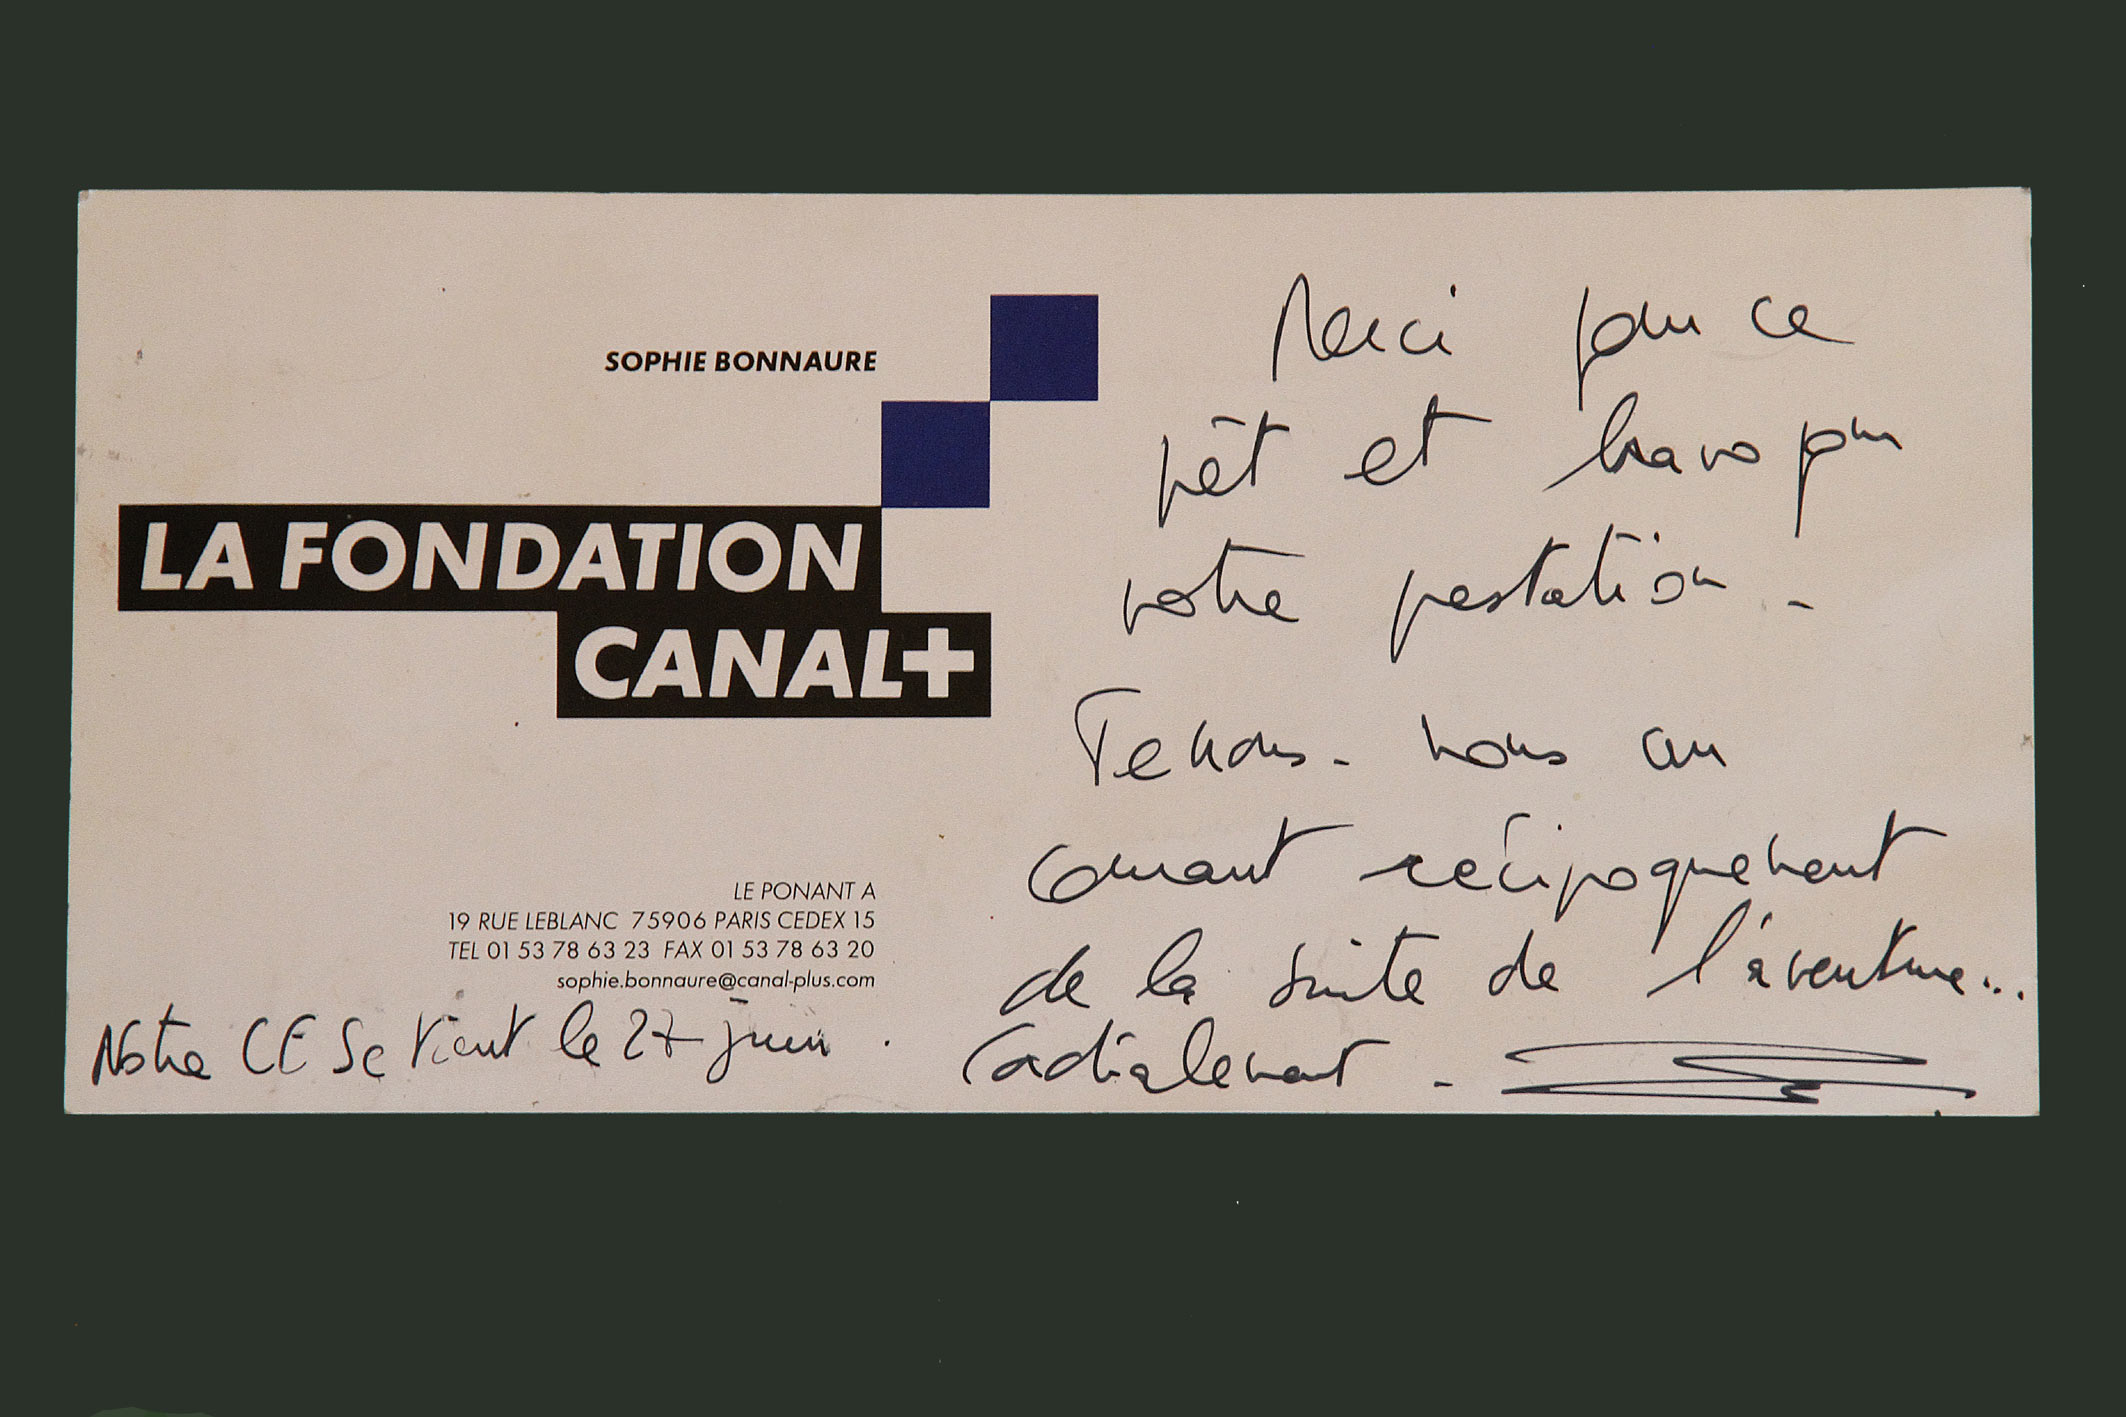 SOPHIE BONNAURE
LA FONDATION
CANAL+
LE PONANT A
19 RUE LEBLANC 75906 PARIS CEDEX 15
TEL 01 53 78 63 23 FAX 01 53 78 63 20
sophie.bonnaure@canal-plus.com
Notre CE se tient le 27 juin.
Merci pour ce
prêt et bravo pour
votre prestation -
Tenons-nous au
courant réciproquement
de la suite de l'aventure...
Cordialement -